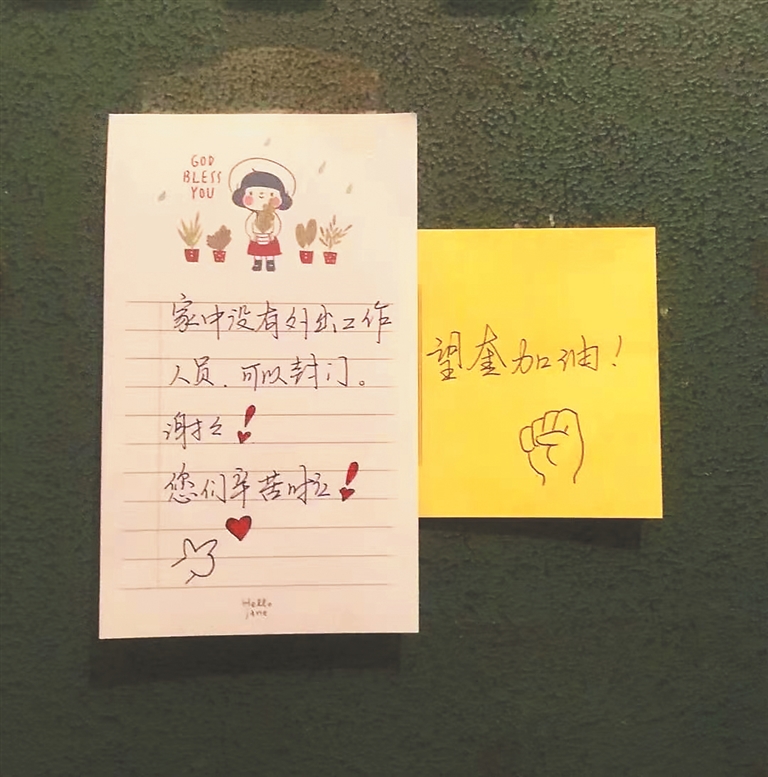 GOD
BLESS
YOU
家中没有外出工作
人员、可以封门。
谢谢!
您们辛苦啦!
Hello
jane
望奎加油!